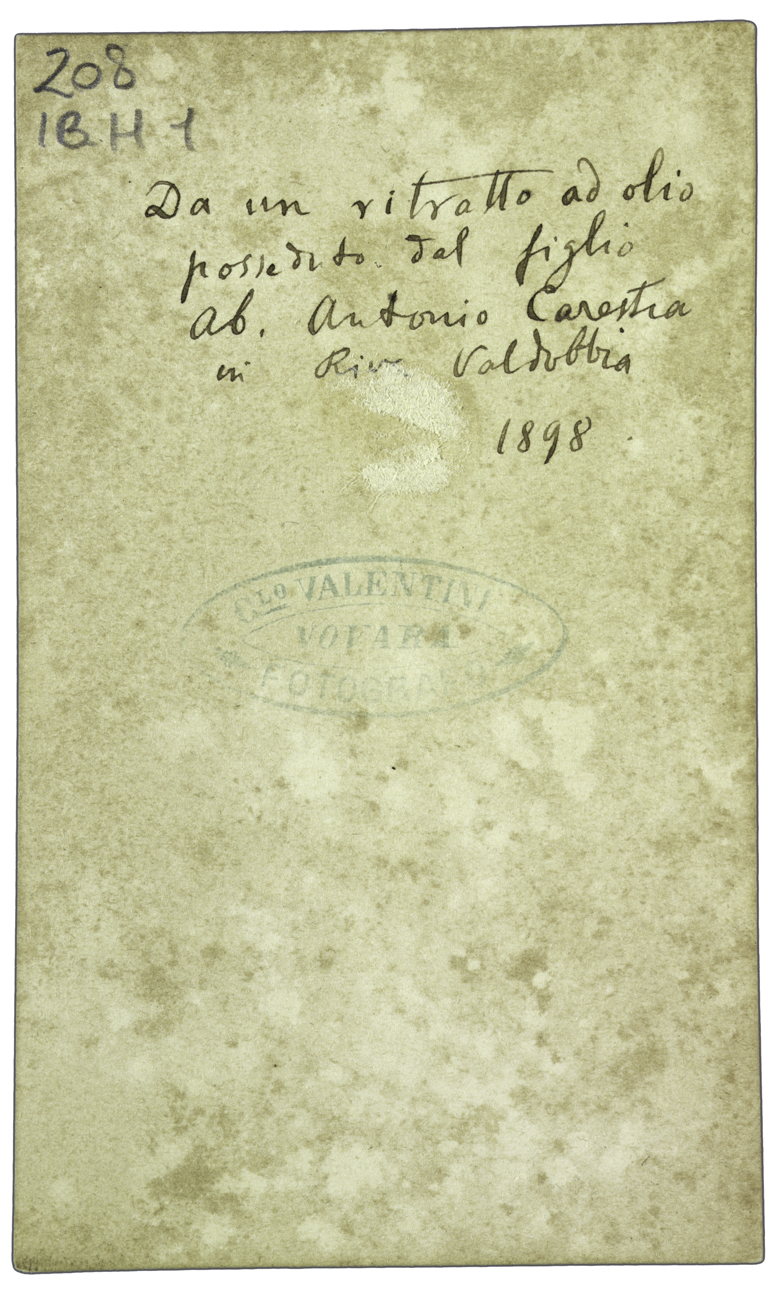 208
IB H 1
Da un ritratto ad olio
posseduto dal figlio
Ab. Antonio Carestia
in Riva Valdobbia
1898
VALENTINI
NOVARA
FOTOGRAFO